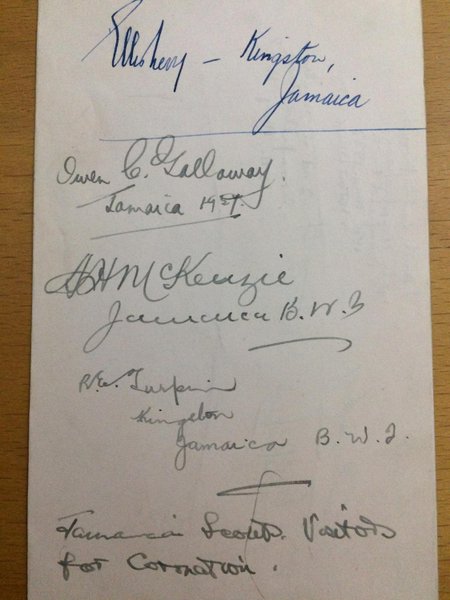 – Kingston,
Jamaica
Owen C. Galloway.
Jamaica 1937.
AHMcKenzie
Jamaica B.W.I
R.E. Turpin
Kingston
Jamaica B.W.I.
Jamaica Scouts. Visitors
for Coronation.